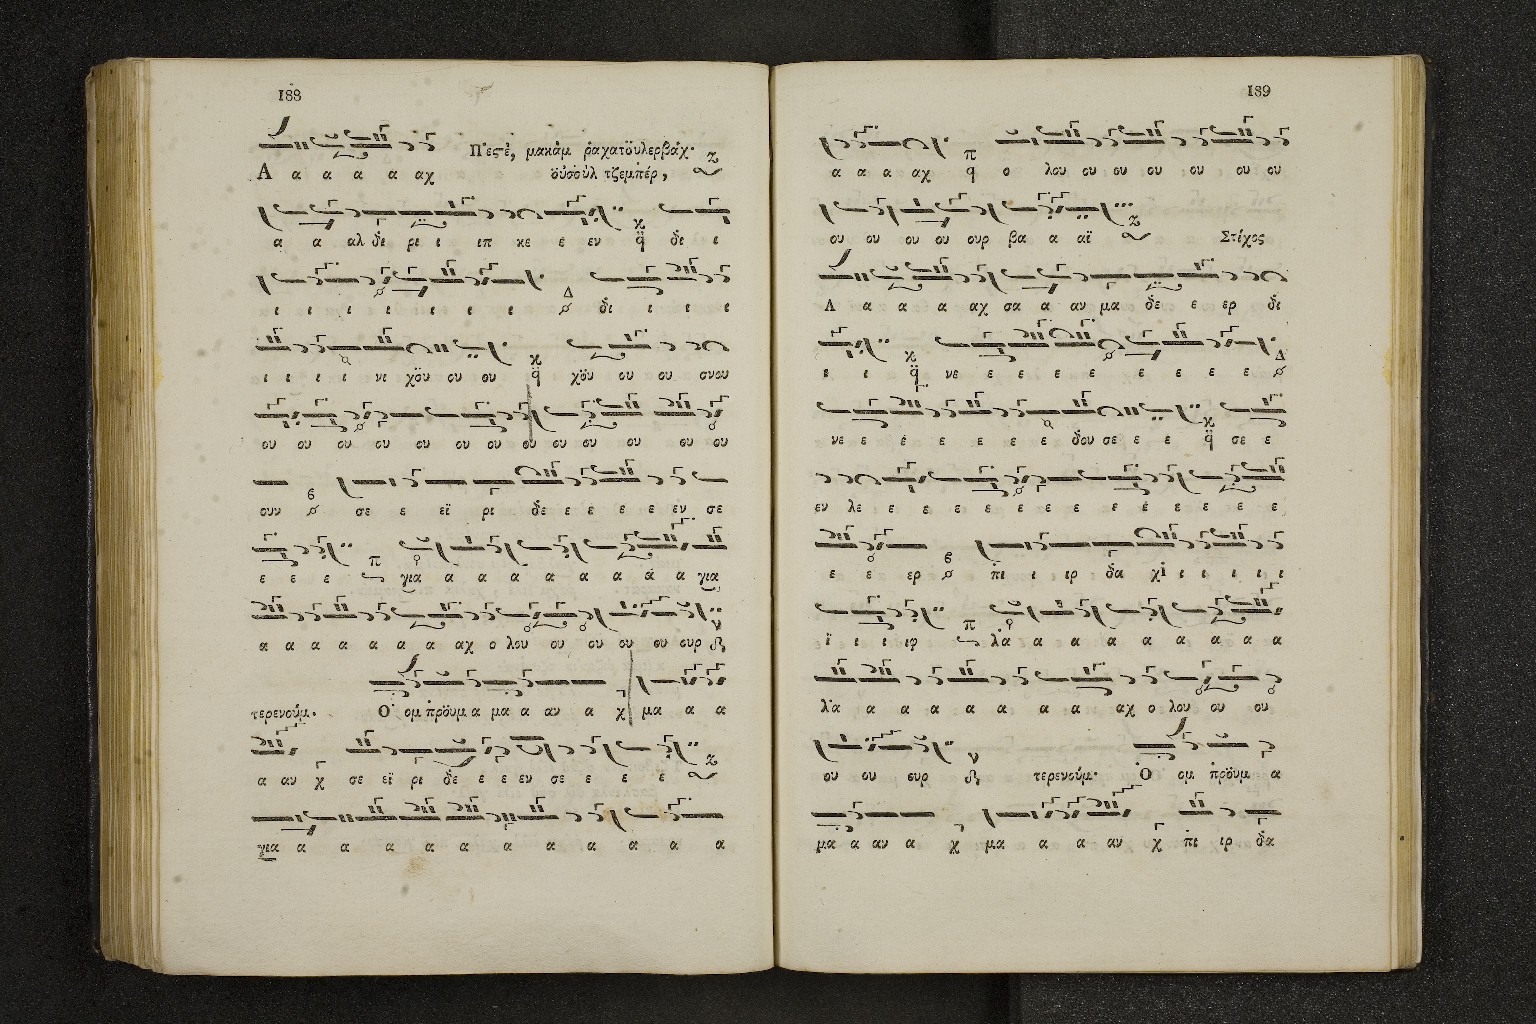 188
Πεςέ, μακὰμ ῥαχατοὺλερβὰχ·
οὐσοὺλ τζεμπέρ,
Α α α α α αχ
α α αλ δε ρι ι ιπ κε ε εν δι ι
ι ι ι ι ι ι ι ι δι ι ι ι
ι ι ι ι νι χοὺ ου ου χοὺ ου ου σνου
ου ου ου ου ου ου ου ου ου ου ου ου ου
ουν σε ε εϊ ρι δε ε ε ε ε εν σε
ε ε ε για α α α α α α α α για
α α α α α α α α αχ ο λου ου ου ου ου ουρ
τερενούμ. Ο ομ προὺμ α μα α αν α χ μα α α
α αν χ σε εϊ ρι δε ε ε εν σε ε ε ε
για α α α α α α α α α α α
189
α α α αχ ο λου ου ου ου ου ου ου
ου ου ου ου ουρ βα α αϊ Στίχος
Α α α α αχ σα α αν μα δε ε ερ δι
ι ι νε ε ε ε ε ε ε ε ε
νε ε ε ε ε ε ε δου σε ε ε σε ε
εν λε ε ε ε ε ε ε ε ε ε ε ε ε
ε ε ερ πι ι ιρ δα χι ι ι ι ι
ϊ ι ι ιφ λα α α α α α α α α
λα α α α α α α α αχ ο λου ου ου
ου ου ουρ τερενούμ· Ο ομ προὺμ α
μα α αν α χ μα α α αν χ πι ιρ δα